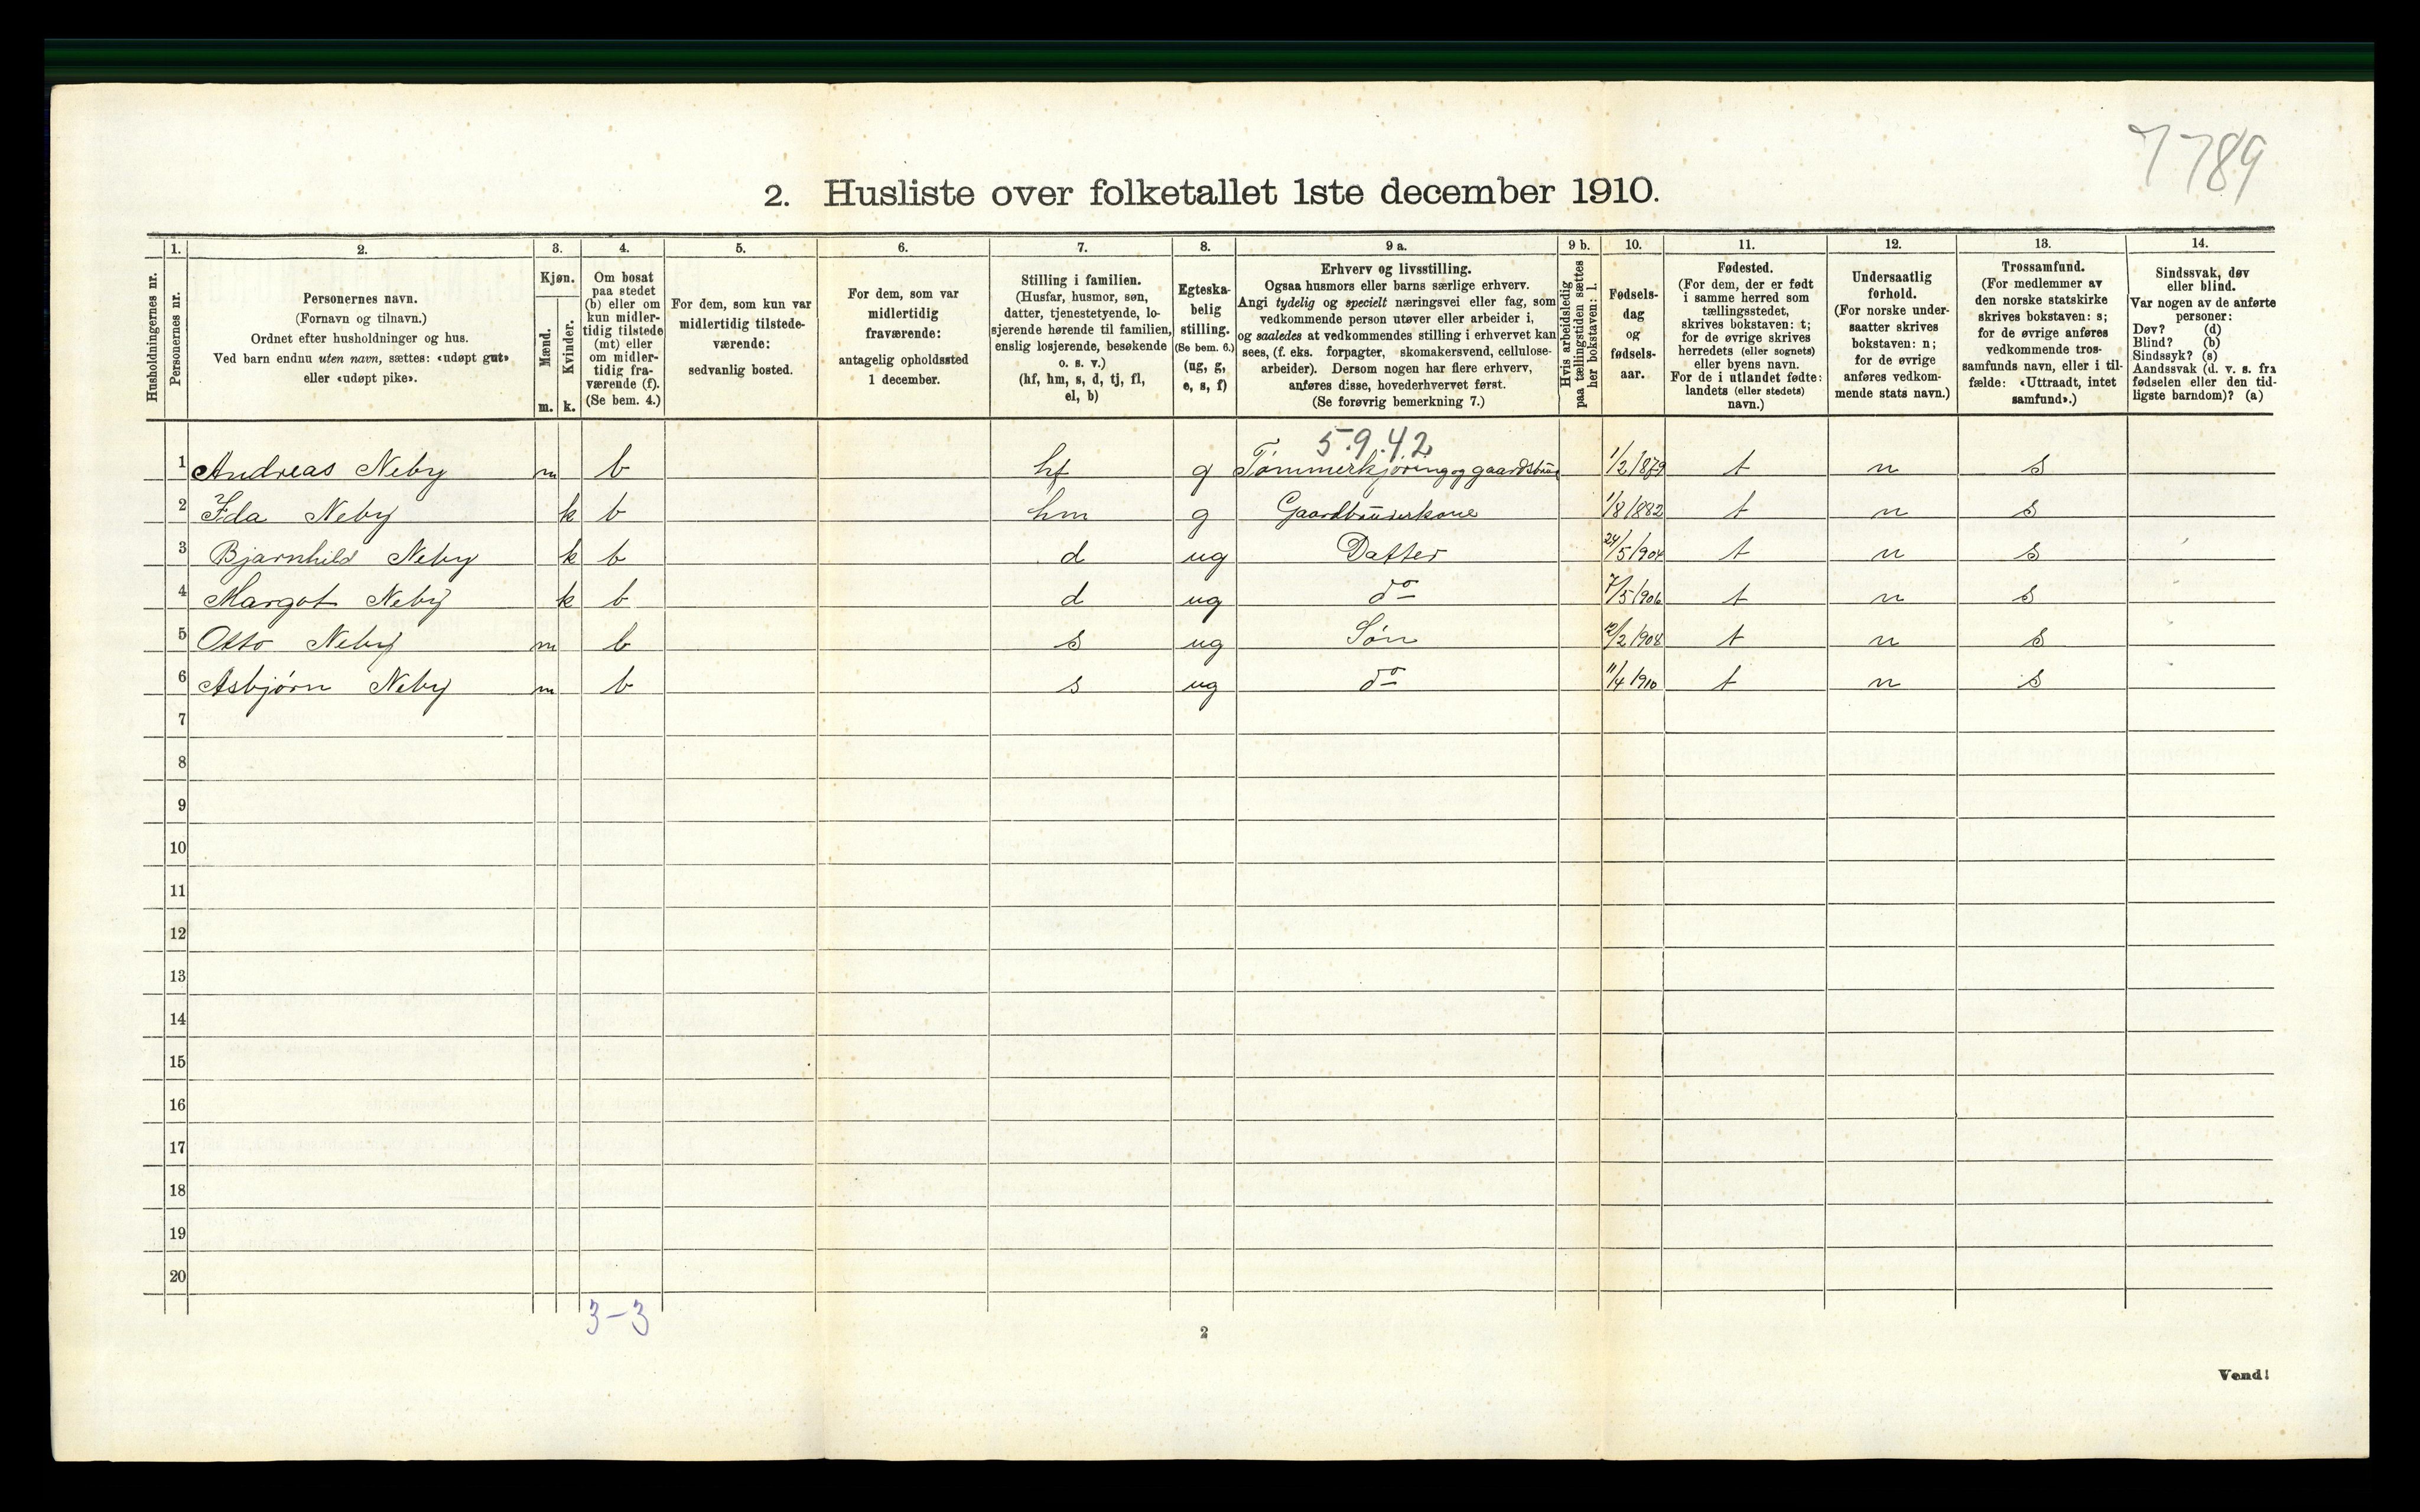 7789
2. Husliste over folketallet 1ste december 1910.
Husholdningernes nr.
1.
Personernes nr.
2.
Personernes navn.
(Fornavn og tilnavn.)
Ordnet efter husholdninger og hus.
Ved barn endnu uten navn, sættes: «udøpt gut»
eller «udøpt pike».
3.
Kjøn.
Mænd.
Kvinder.
m. k.
4.
Om bosat
paa stedet
(b) eller om
kun midler-
tidig tilstede
(mt) eller
om midler-
tidig fra-
værende (f).
(Se bem. 4.)
5.
For dem, som kun var
midlertidig tilstede-
værende:
sedvanlig bosted.
6.
For dem, som var
midlertidig
fraværende:
antagelig opholdssted
1 december.
7.
Stilling i familien.
(Husfar, husmor, søn,
datter, tjenestetyende, lo-
sjerende hørende til familien,
enslig losjerende, besøkende
o. s. v.)
(hf, hm, s, d, tj, fl,
el, b)
8.
Egteska-
belig
stilling.
(Se bem. 6.)
(ug, g,
e, s, f)
9 a.
Erhverv og livsstilling.
Ogsaa husmors eller barns særlige erhverv.
Angi tydelig og specielt næringsvei eller fag, som
vedkommende person utøver eller arbeider i,
og saaledes at vedkommendes stilling i erhvervet kan
sees, (f. eks. forpagter, skomakersvend, cellulose-
arbeider). Dersom nogen har flere erhverv,
anføres disse, hovederhvervet først.
(Se forøvrig bemerkning 7.)
9 b.
Hvis arbeidsledig
paa tællingstiden sættes
her bokstaven: l.
10.
Fødsels-
dag
og
fødsels-
aar.
11.
Fødested.
(For dem, der er født
i samme herred som
tællingsstedet,
skrives bokstaven: t;
for de øvrige skrives
herredets (eller sognets)
eller byens navn.
For de i utlandet fødte:
landets (eller stedets)
navn.)
12.
Undersaatlig
forhold.
(For norske under-
saatter skrives
bokstaven: n;
for de øvrige
anføres vedkom-
mende stats navn.)
13.
Trossamfund.
(For medlemmer av
den norske statskirke
skrives bokstaven: s;
for de øvrige anføres
vedkommende tros-
samfunds navn, eller i til-
fælde: «Uttraadt, intet
samfund».)
14.
Sindssvak, døv
eller blind.
Var nogen av de anførte
personer:
Døv? (d)
Blind? (b)
Sindssyk? (s)
Aandssvak (d. v. s. fra
fødselen eller den tid-
ligste barndom)? (a)
5.9.4.2
1 Andreas Neby m b hf g Tømmerkjøring og gaardsbru 1/2 1879 t n s
2 Ida Neby k b hm g Gaardbruderkone 1/8 1882 t n s
3 Bjarnhild Neby k b d ug Datter 24/5 1904 t n s
4 Margot Neby k b d ug do 7/5 1906 t n s
5 Otto Neby m b s ug Søn 12/2 1908 t n s
6 Asbjørn Neby m b s ug do 11/4 1910 t n s
7
8
9
10
11
12
13
14
15
16
17
18
19
20
3-3
2
Vend!